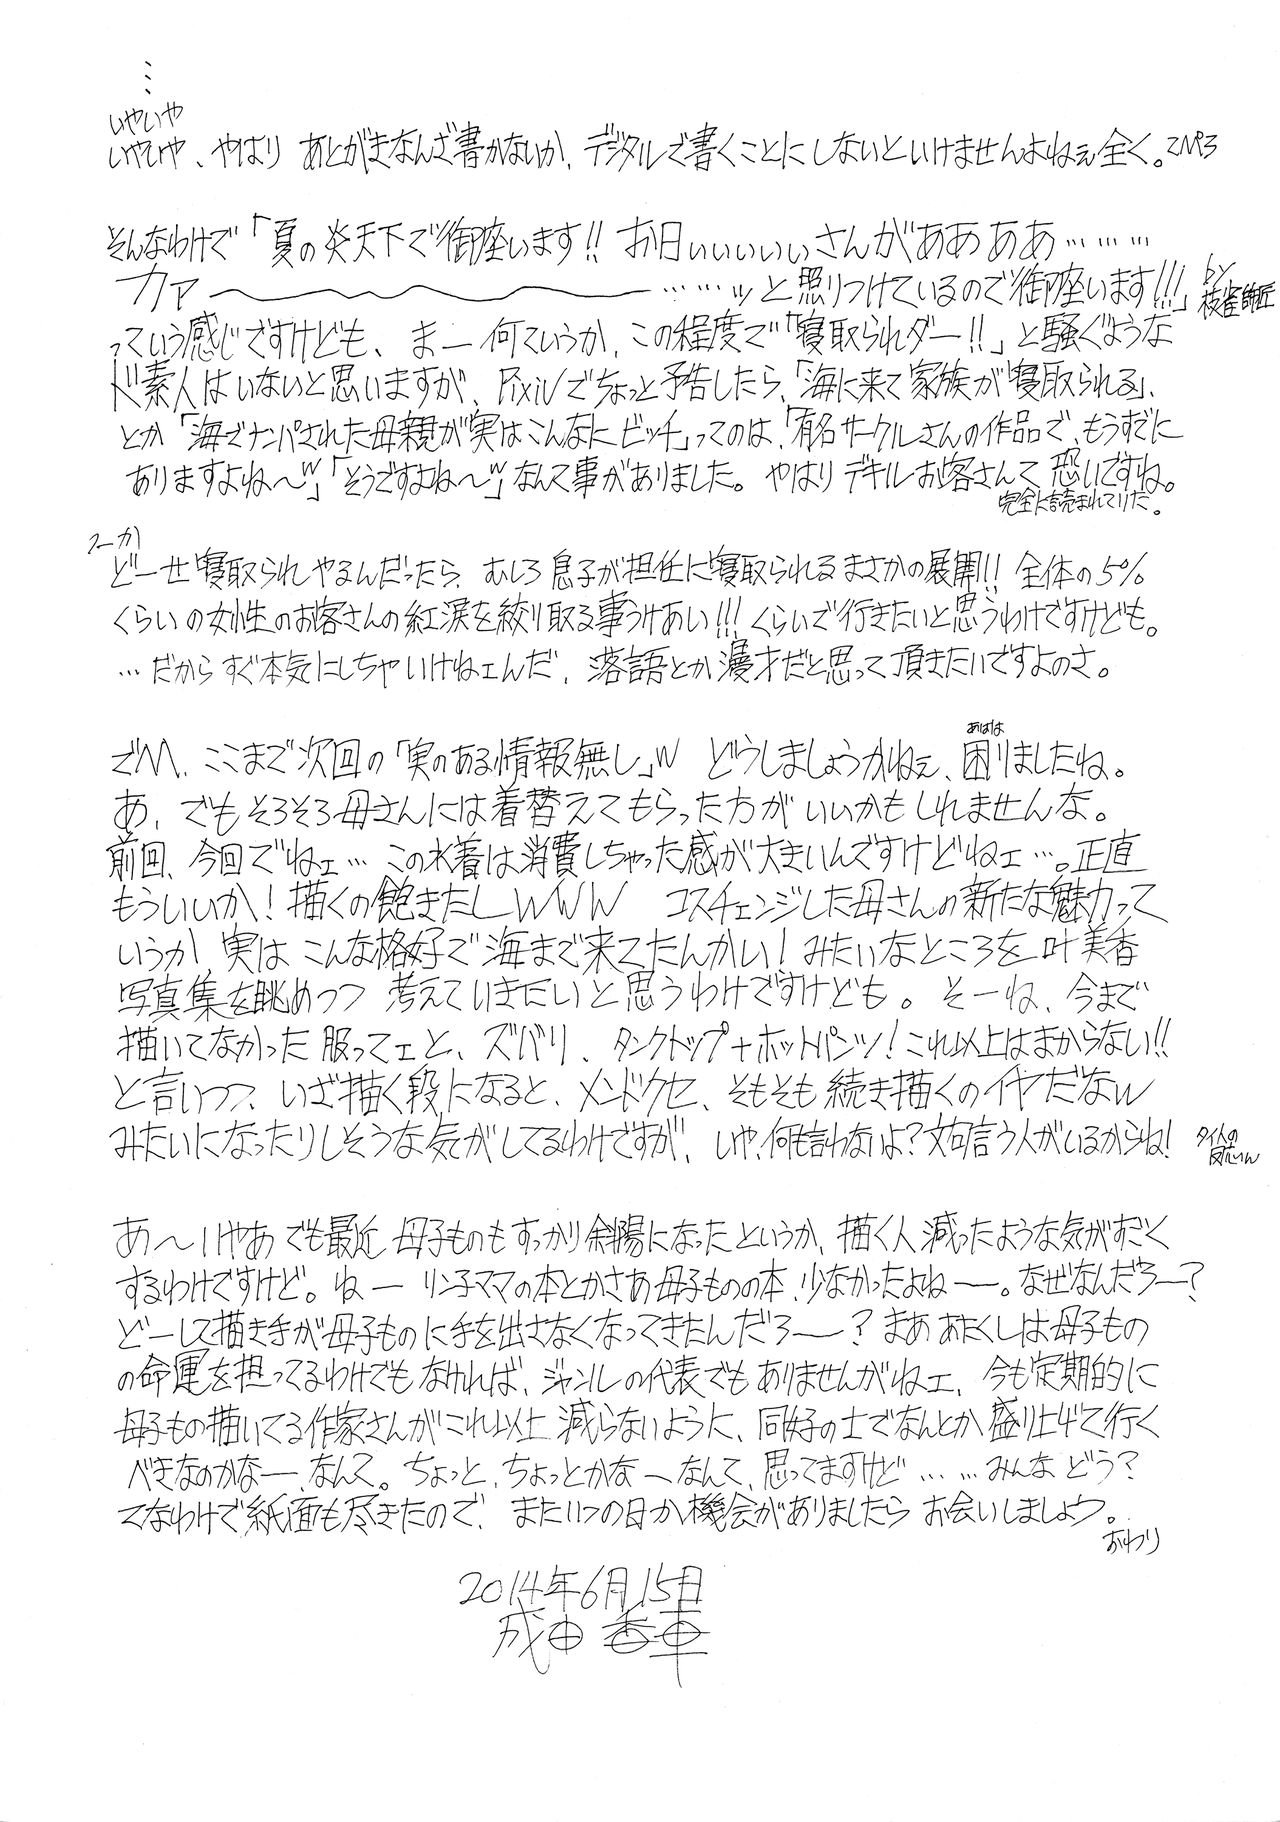 …
いやいや
いやいや、やはり あとがきなんざ書かないか、デジタルで書くことにしないといけませんよねぇ全く。てへぺろ
そんなわけで「夏の炎天下で御座います!! お日ぃぃぃぃぃさんがああああ………
カァ〜〜〜……ッと照りつけているので御座います!!!」by枝雀師匠
っていう感じですけども、まー何ていうか、この程度で「寝取られダー!!」と騒ぐような
ド素人はいないと思いますが、Pixivでちょっと予告したら、「海に来て家族が寝取られる」、
とか「海でナンパされた母親が実はこんなにビッチ」ってのは、「有名サークルさんの作品で、もうすでに
ありますよね〜w」「そうですよね〜w」なんて事がありました。やはりデキルお客さんて恐いですね。
完全に読まれてりだ。
つーか
どーせ寝取られやるんだったら、むしろ息子が担任に寝取られるまさかの展開!! 全体の5%
くらいの女性のお客さんの紅涙を絞り取る事うけあい!!! くらいで行きたいと思うわけですけども。
…だからすぐ本気にしちゃいけねェんだ、落語とか漫才だと思って頂きたいですよのさ。
でハハ、ここまで次回の「実のある情報無し」w どうしましょうかねぇ、困りましたね。
あはは
あ、でもそろそろ母さんには着替えてもらった方がいいかもしれませんな。
前回、今回でねェ…この水着は消費しちゃった感が大きいんですけどねェ…。正直
もういいか!描くの飽きたしwww コスチェンジした母さんの新たな魅力って
いうか、実はこんな格好で海まで来てたんかい!みたいなところを叶美香
写真集を眺めつつ考えていきたいと思うわけですけども。そーね、今まで
描いてなかった服ってェと、ズバリ、タンクトップ+ホットパンツ!これ以上はまからない!!
と言いつつ、いざ描く段になると、メンドクセ、そもそも続き描くのイヤだなw
みたいになったりしそうな気がしてるわけですが、いや、何も言わないよ?文句言う人がいるからね!
あ〜いやあでも最近母子ものもすっかり斜陽になったというか、描く人減ったような気がすごく
するわけですけど。ねーリン子ママの本とかさあ母子ものの本、少なかったよねー。なぜなんだろー?
どーして描き手が母子ものに手を出さなくなってきたんだろー?まああたくしは母子もの
の命運を担ってるわけでもなければ、ジャンルの代表でもありませんがねェ、今も定期的に
母子もの描いてる作家さんがこれ以上減らないように、同好の士でなんとか盛り上げて行く
べきなのかなー、なんて。ちょっと、ちょっとかなーなんて、思ってますけど……みんなどう?
てなわけで紙面も尽きたので、またいつの日か機会がありましたらお会いしましょう。
おわり
2014年6月15日
成田香車